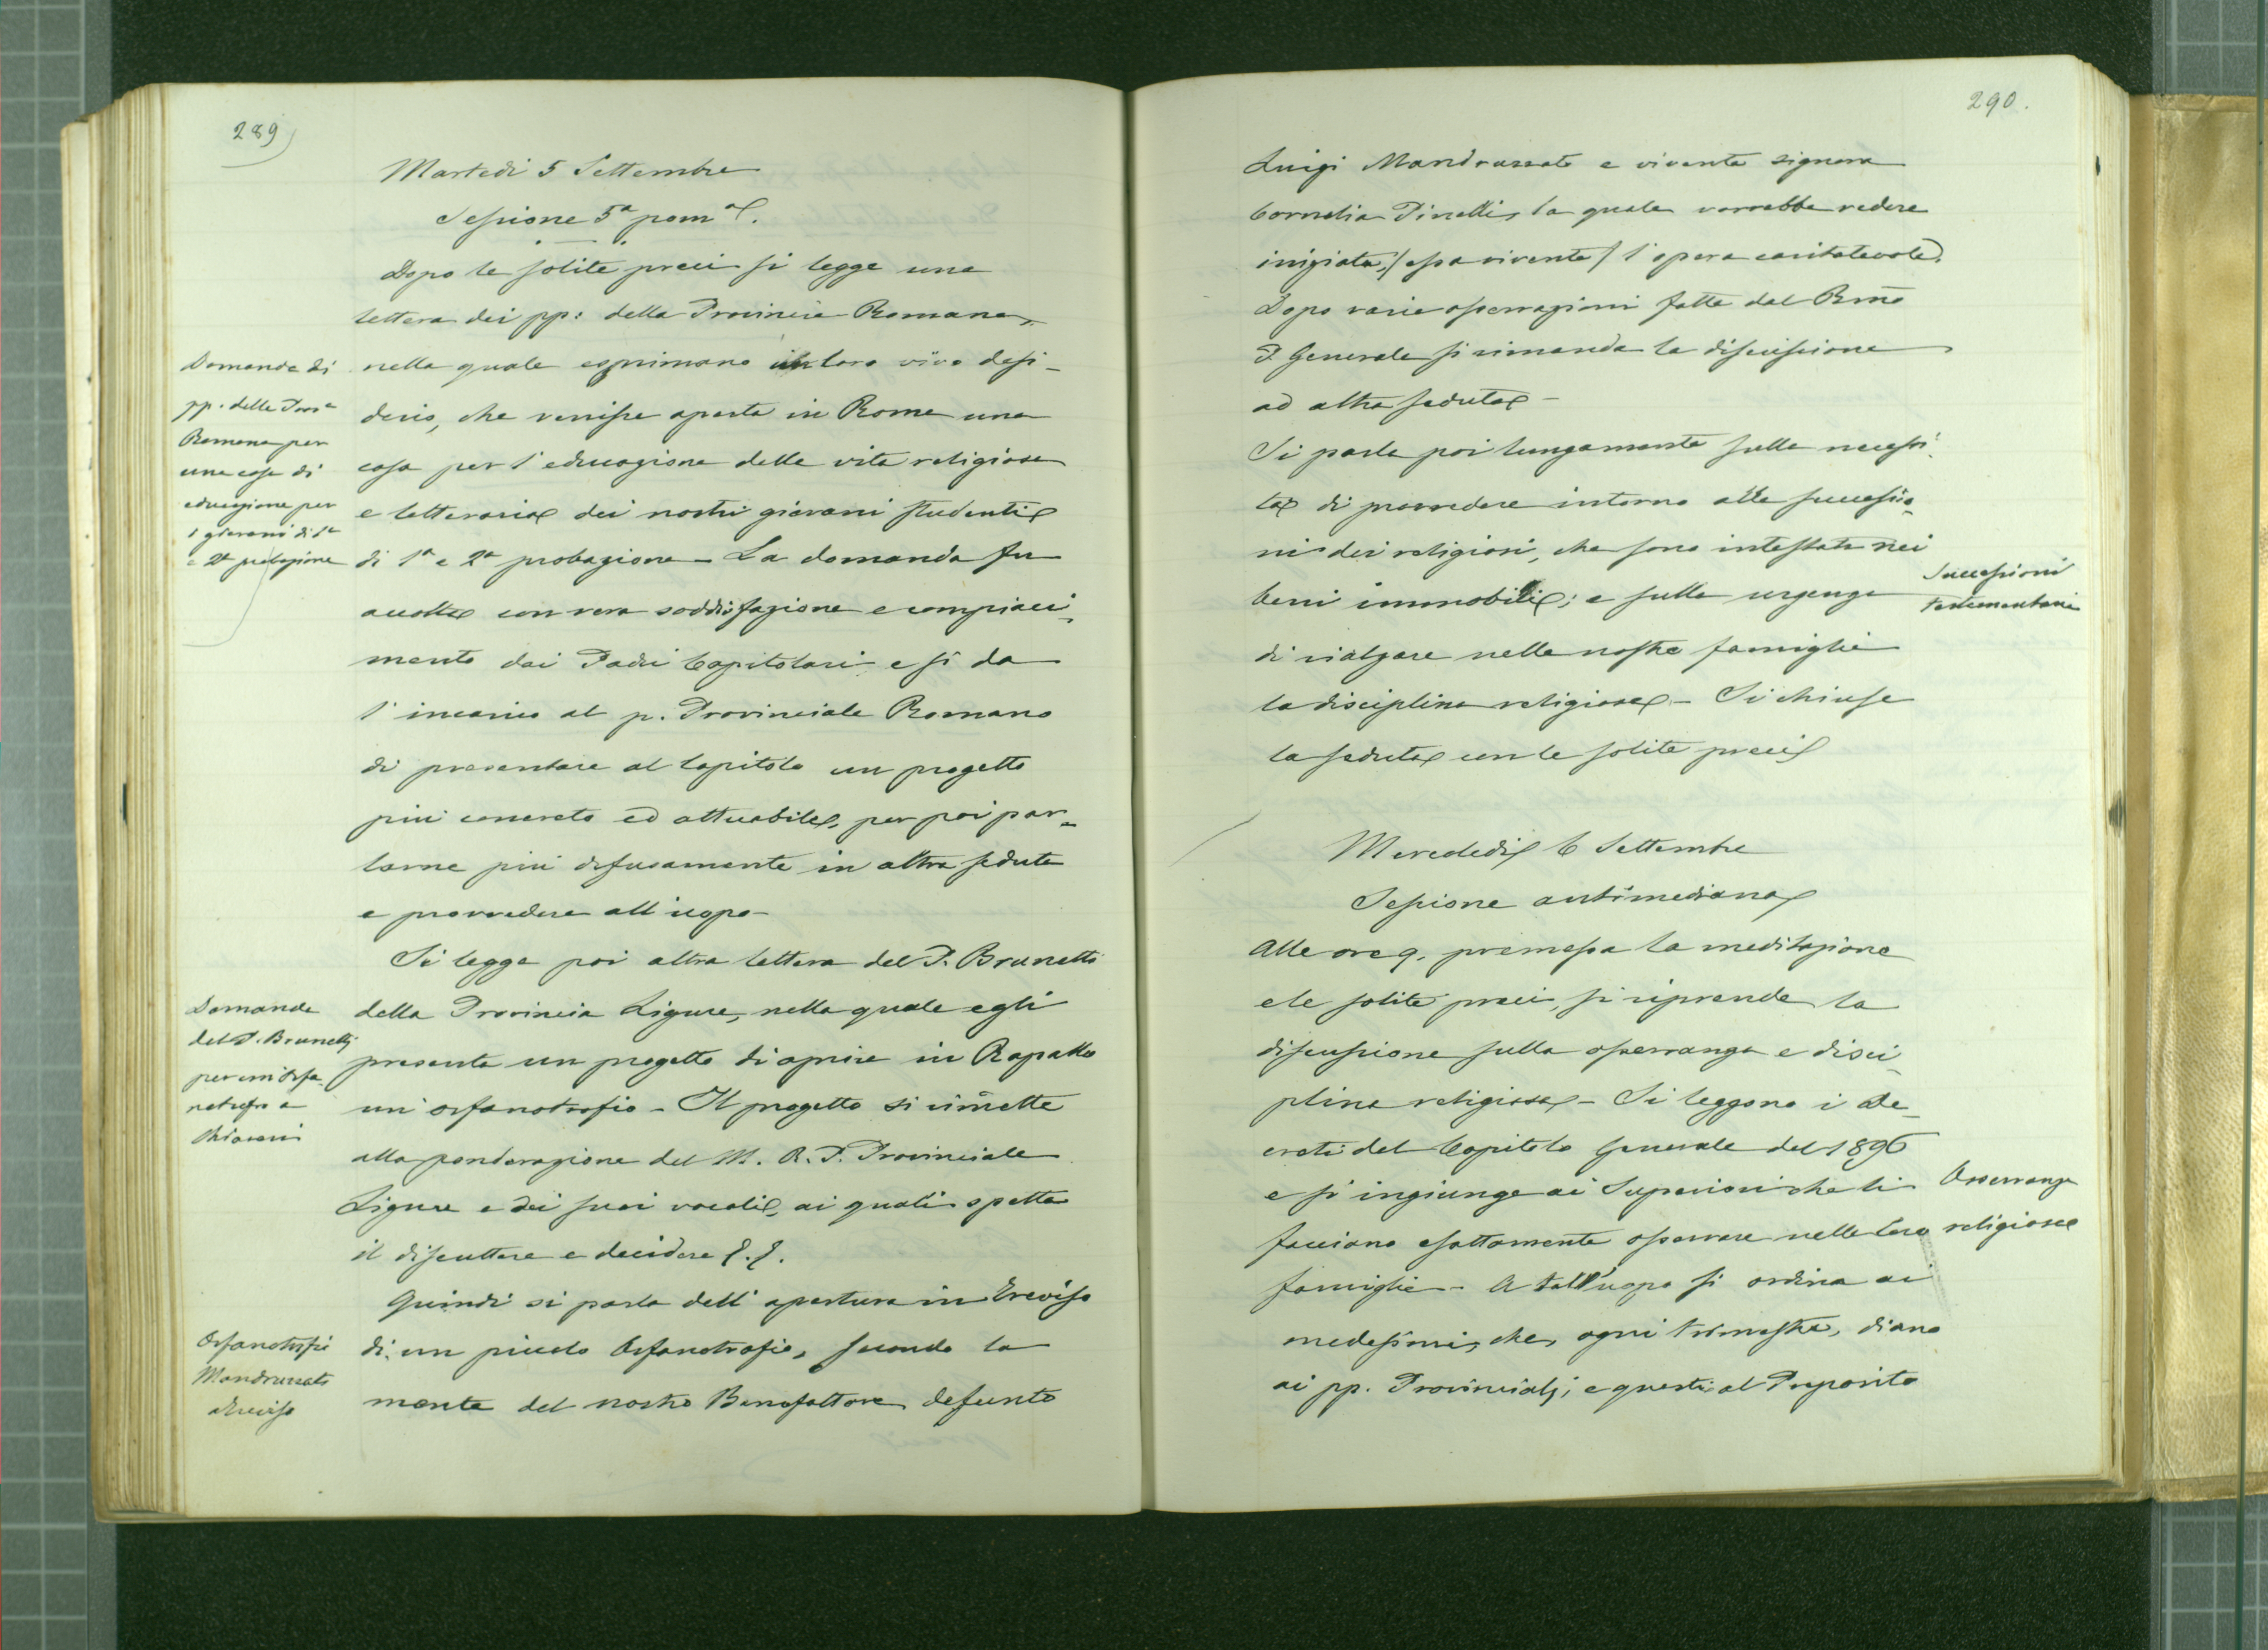 289
Martedì 5 Settembre
Sessione 5ª pom.ᵉ
Dopo le solite preci si legge una
lettera dei pp: della Provincia Romana,
nella quale esprimano il loro vivo desi-
derio, che venisse aperta in Roma una
casa per l'educazione della vita religiosa
e letteraria dei nostri giovani studenti
di 1ª e 2ª probazione - La domanda fu
accolta con vera soddisfazione e compiaci-
mento dai Padri Capitolari e si da
l'incarico al p. Provinciale Romano
di presentare al Capitolo un progetto
più concreto ed attuabile, per poi par-
larne più difusamente in altra seduta
e provvedere all'uopo -
Domanda di
pp. della Prov.ª
Romana per
una casa di
educazione per
i giovani di 1ª
e 2ª probazione
Si legge poi altra lettera del P. Brunetti
della Provincia Ligure, nella quale egli
presenta un progetto di aprire in Rapallo
un'orfanotrofio - Il progetto si rimette
alla ponderazione del M. R. P. Provinciale
Ligure e dei suoi vocali, ai quali spetta
il discuttere e decidere
Domanda
del P. Brunetti
per un orfa
notrofio a
Chiavari
Quindi si parla dell'apertura in Treviso
di un piccolo Orfanotrofio, secondo la
mente del nostro Benefattore defunto
Orfanotrofio
Mandruzzato
a Treviso
290.
Luigi Mandruzzato e vivente signora
Cornelia Pinelli, la quale vorrebbe vedere
iniziata, (essa vivente) l'opera caritatevole.
Dopo varie osservazioni fatte dal Rmo
P. Generale si rimanda la discussione
ad altra seduta -
Si parla poi lungamente sulla necessi-
tà di provvedere intorno alle successio-
ni dei religiosi, che sono intestati nei
beni immobili; e sulla urgenza
di rialzare nelle nostre famiglie
la disciplina religiosa - Si chiuse
la seduta con le solite preci
Successioni
testamentarie
Mercoledì 6 Settembre
Sessione antimediana
Alle ore 9. premessa la meditazione
e le solite preci, si riprende la
discussione sulla osservanza e disci-
plina religiosa - Si leggono i De-
creti del Capitolo Generale del 1896
e si ingiunge ai Superiori che li
facciano esattamente osservare nelle loro
famiglie - A tall'uopo si ordina ai
medesimi, che, ogni trimestre, diano
ai pp. Provinciali; e questi al Preposito
Osservanza
religiosa